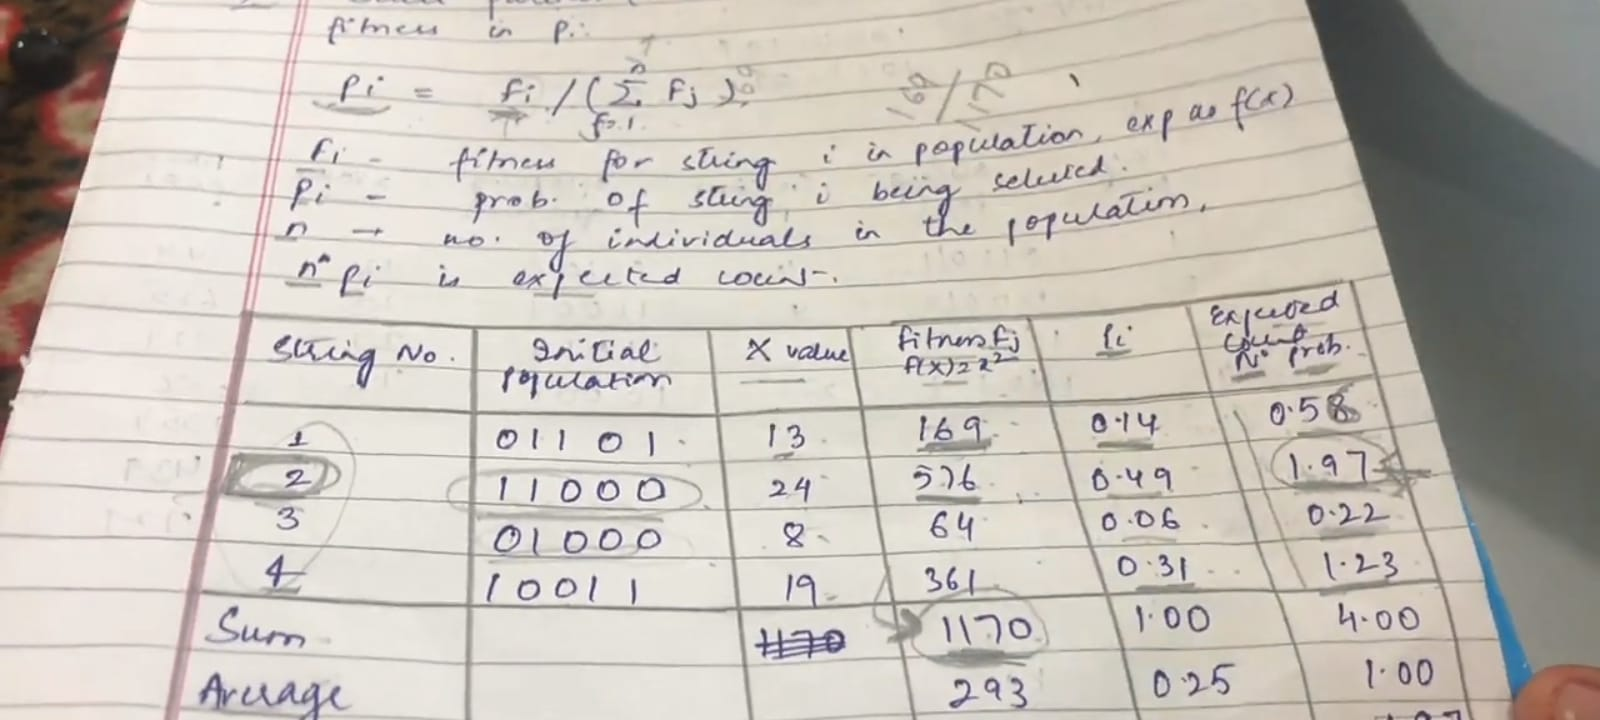 fitness in Pi.
Pi = fi / (Σ fj)
n
j=1
169/170
fi - fitness for string i in population, exp as f(x)
Pi - prob. of string i being selected.
n → no. of individuals in the population,
n* Pi is expected count.
String No. Initial Population X value fitness fj f(x)=x² Pi Expected Count N* Prob.
1 01101 13 169 0.14 0.58
2 11000 24 576 0.49 1.97
3 01000 8 64 0.06 0.22
4 10011 19 361 0.31 1.23
Sum 1170 1170 1.00 4.00
Average 293 0.25 1.00